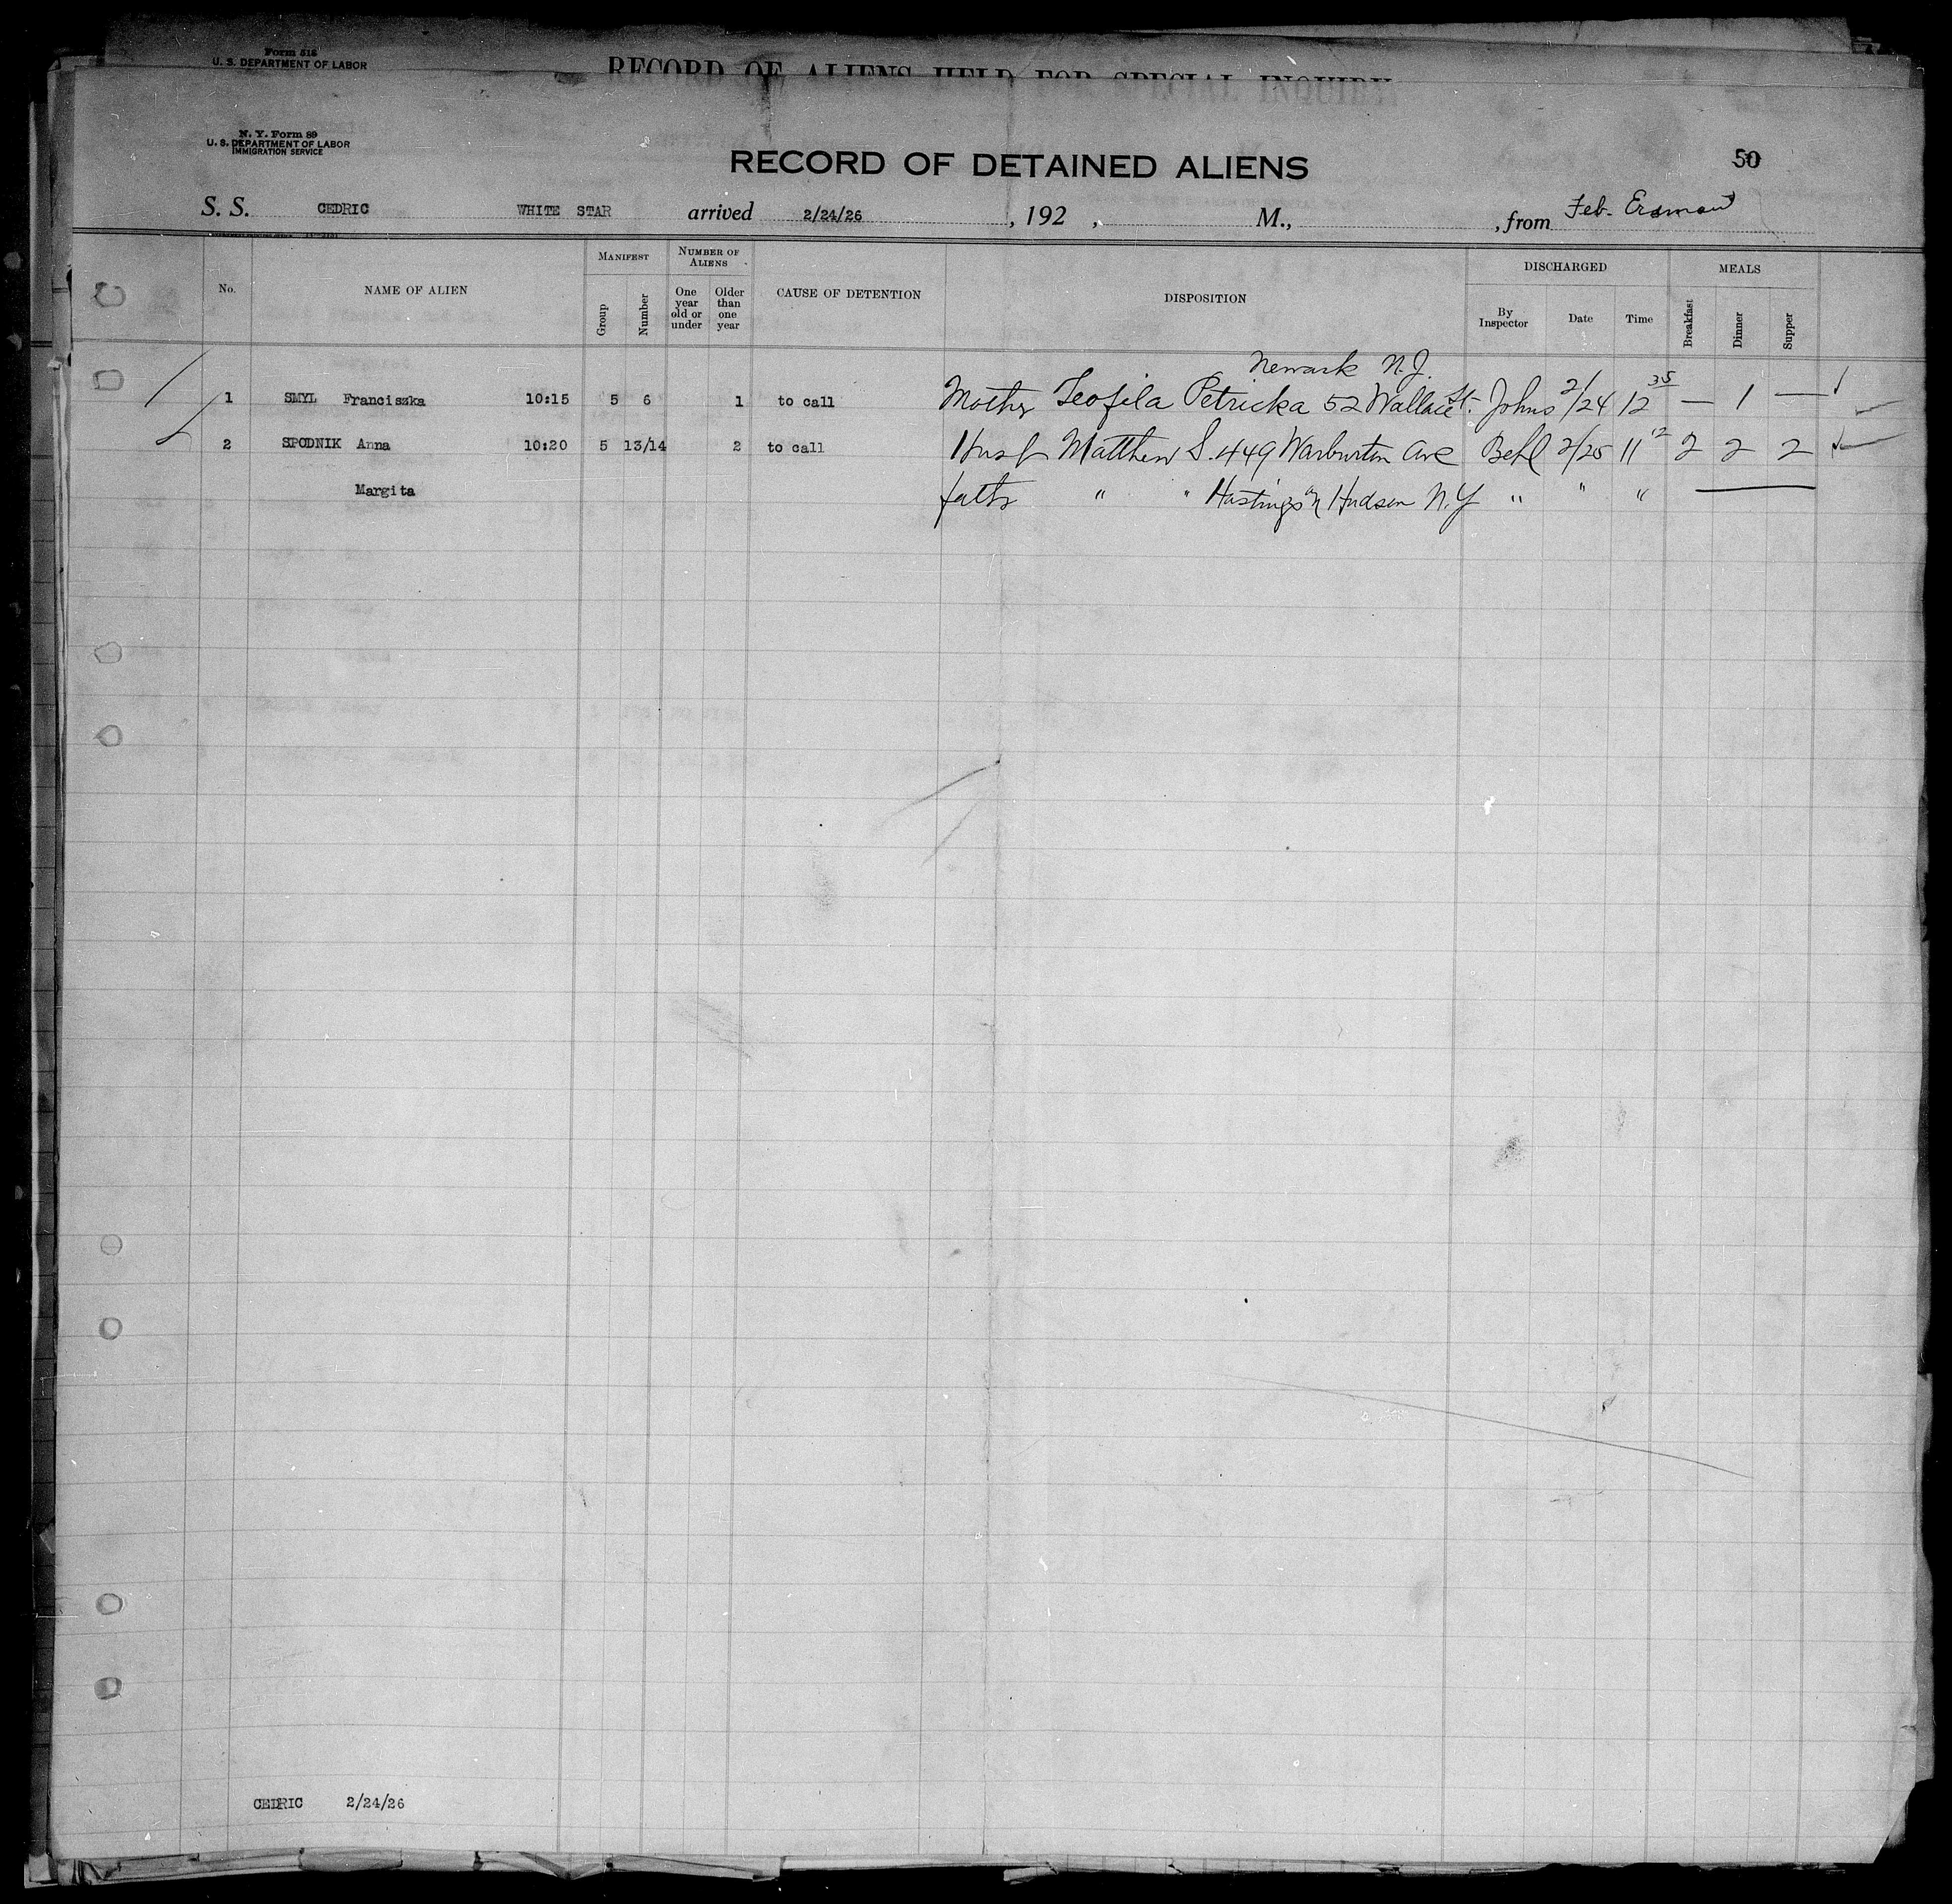 Form 518
U. S. DEPARTMENT OF LABOR
RECORD OF ALIENS HELD FOR SPECIAL INQUIRY
N. Y. Form 89
U. S. DEPARTMENT OF LABOR
IMMIGRATION SERVICE
RECORD OF DETAINED ALIENS
50
S. S. CEDRIC WHITE STAR arrived 2/24/26 , 192 , M., , from Feb.
No. NAME OF ALIEN MANIFEST Group Number NUMBER OF ALIENS One year old or under Older than one year CAUSE OF DETENTION DISPOSITION DISCHARGED By Inspector Date Time MEALS Breakfast Dinner Supper
Newark N.J.
1 SMYL Franciszka 10:15 5 6 1 to call Mother Teofila Petricka 52 Wallace St. Johns 2/24 12 35 — 1 —
2 SPODNIK Anna 10:20 5 13/14 2 to call Husb Matthew S. 449 Warburton Ave 2/25 11 12 2 2 2
Margita fath " " Hastings on Hudson N.Y " " "
CEDRIC 2/24/26